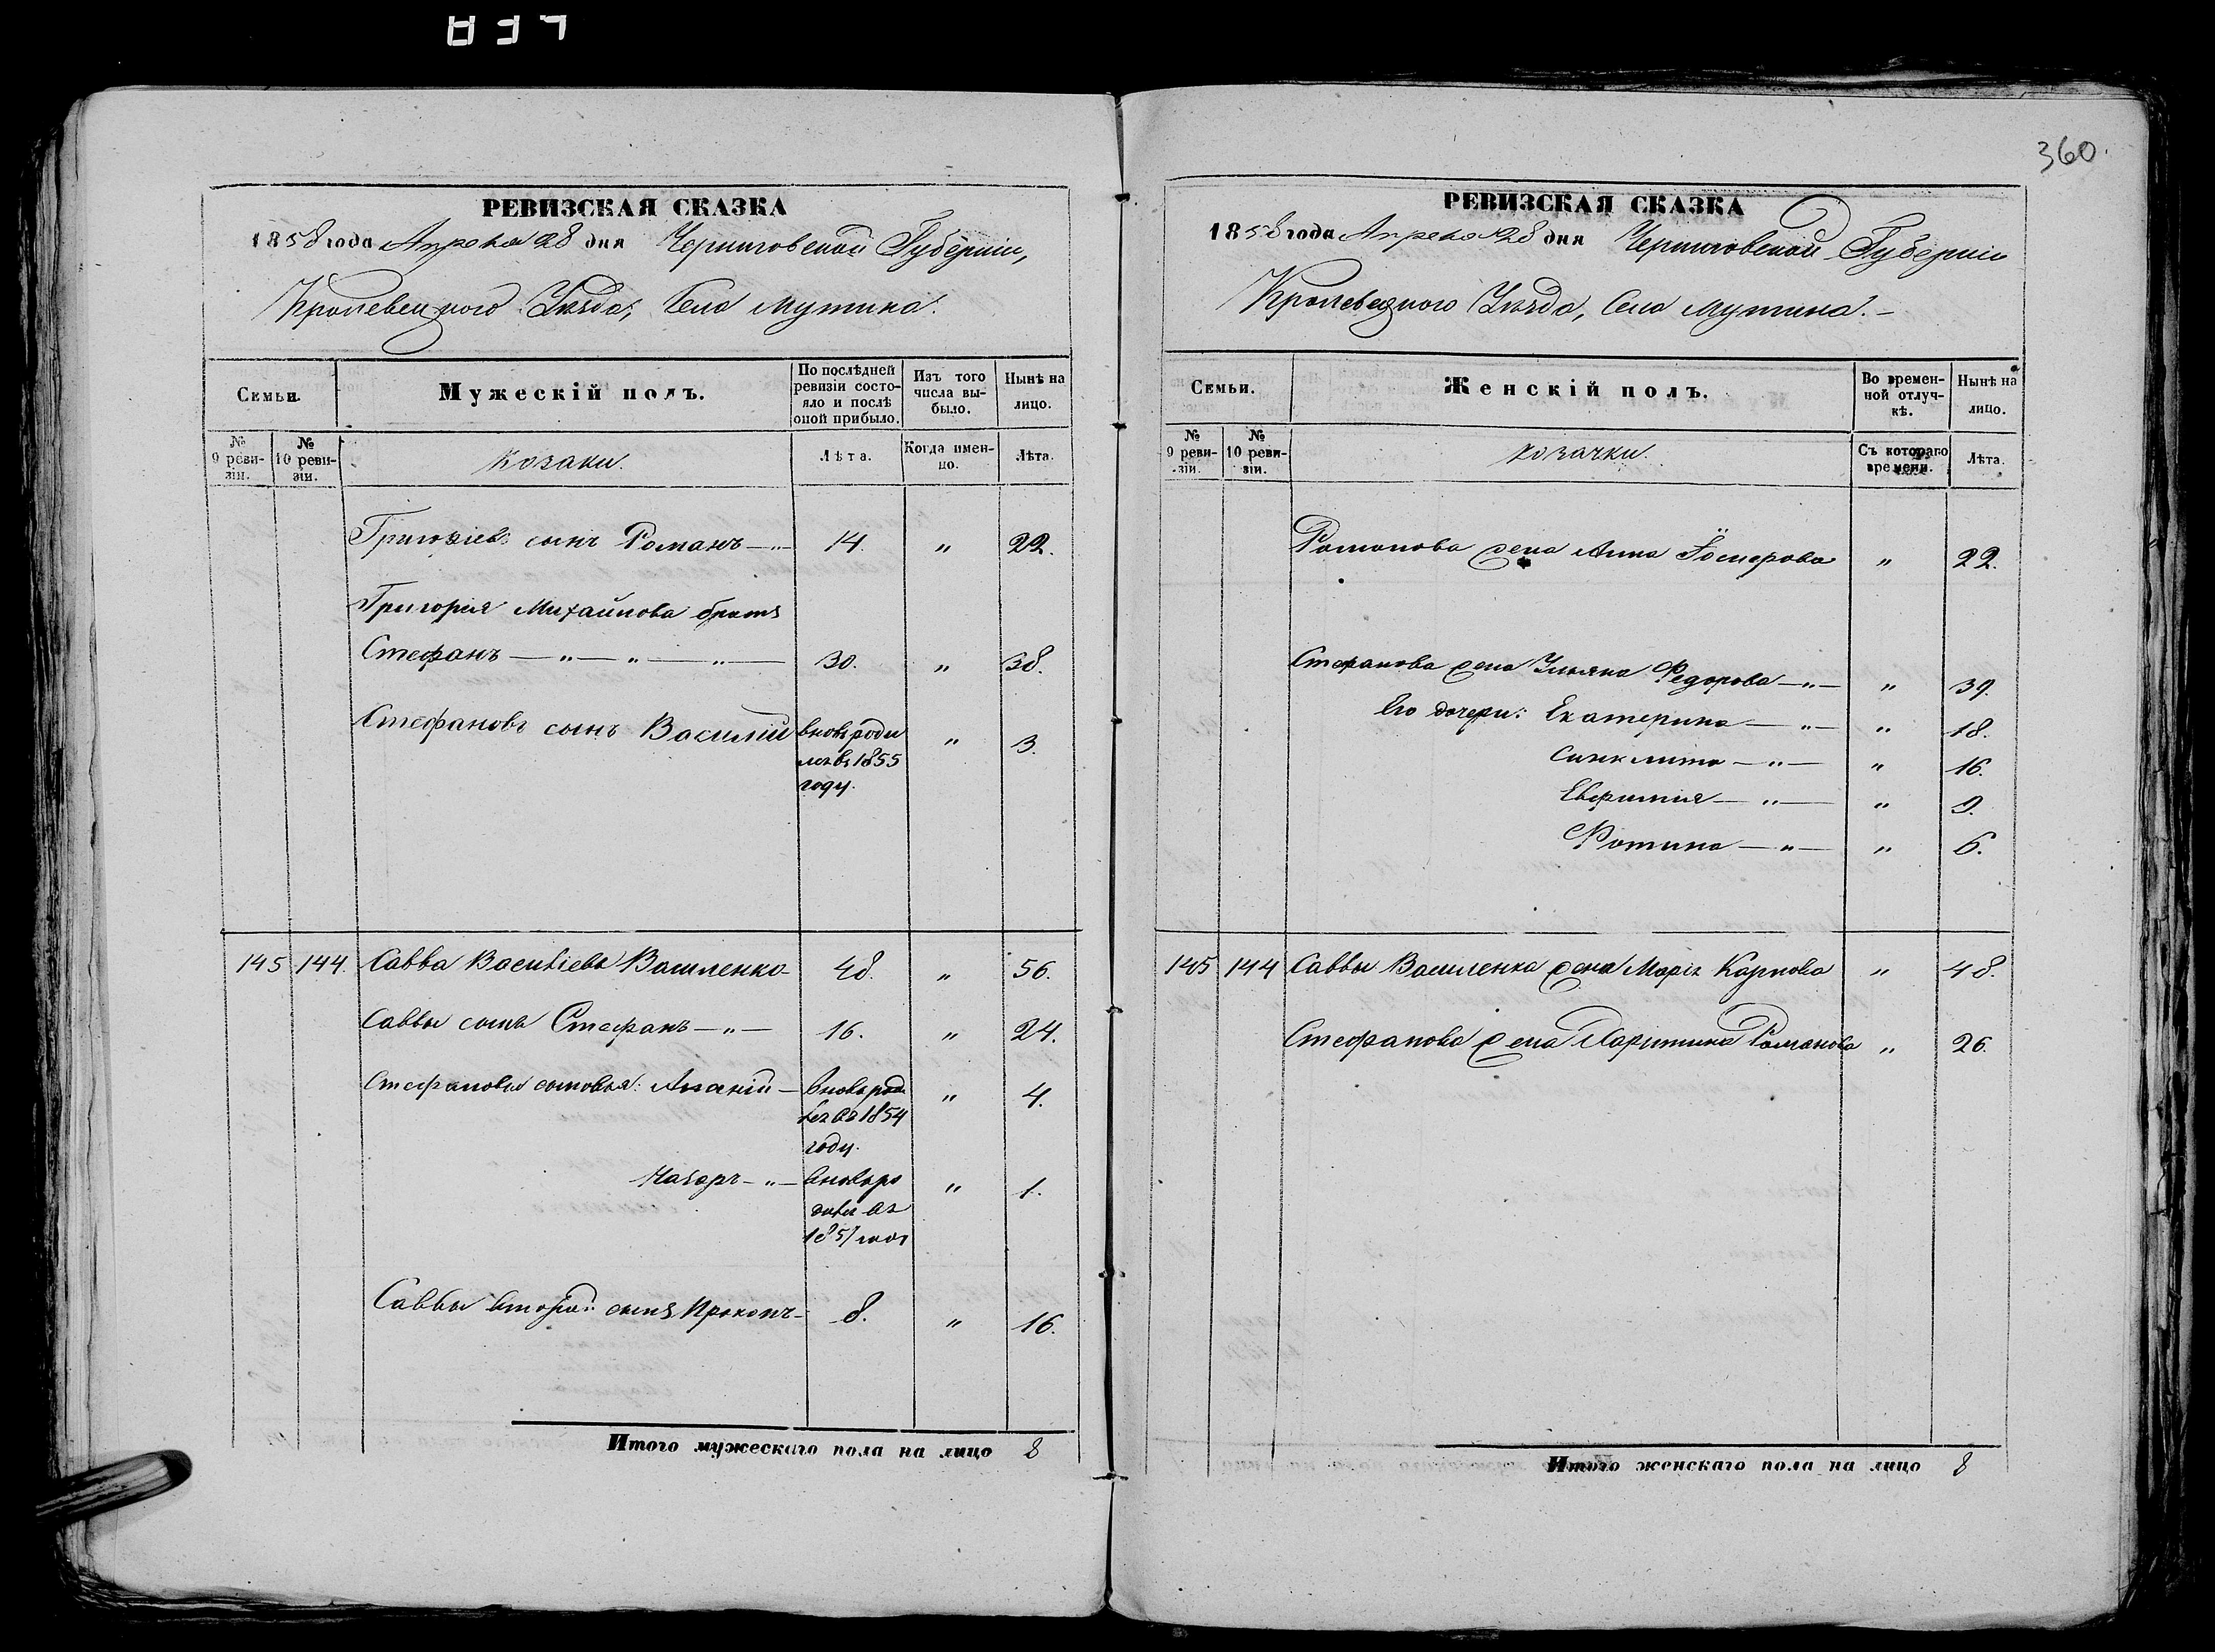 837
360.
РЕВИЗСКАЯ СКАЗКА
1858 года Апреля 28 дня Черниговской Губерніи,
Кролевецкого Уѣзда, Села Мутина.
Семьи.
Мужескій полъ.
По послѣдней ревизіи состояло и послѣ оной прибыло.
Изъ того числа выбыло.
Нынѣ на лицо.
№ 9 ревизіи.
№ 10 ревизіи.
Козаки.
Лѣта.
Когда именно.
Лѣта.
Григоріевъ сынъ Романъ — " — 14. " 22.
Григорія Михайлова братъ
Стефанъ — " — " — " — 30. " 38.
Стефановъ сынъ Василій вновь роди " 3.
лся въ 1855
году.
145 144. Савва Васильевъ Василенко 48. " 56.
Саввы сынъ Стефанъ — " — 16. " 24.
Стефановы сыновья: — вновь роди " 4.
лся въ 1854
году.
Назаръ — " — вновь ро " 1.
дился въ
1857 году
Саввы вторый сынъ Прокопъ — 8. " 16.
Итого мужескаго пола на лицо 8
РЕВИЗСКАЯ СКАЗКА
1858 года Апреля 28 дня Черниговской Губерніи
Кролевецкого Уѣзда, Села Мутина. —
Семьи.
Женскій полъ.
Во временной отлучкѣ.
Нынѣ на лицо.
№ 9 ревизіи.
№ 10 ревизіи.
Козачки.
Съ котораго времени.
Лѣта.
Романова жена Анна " 22.
Стефанова жена Ульяна Федорова — " — " 39.
Его дочери: Екатерина — " — " 18.
Синклита — " — " 16.
Евфимія — " — " 9.
Фотина — " — " 6.
145 144 Саввы Василенка жена Марія Карпова " 48.
Стефанова жена Харитина Романова " 26.
Итого женскаго пола на лицо 8